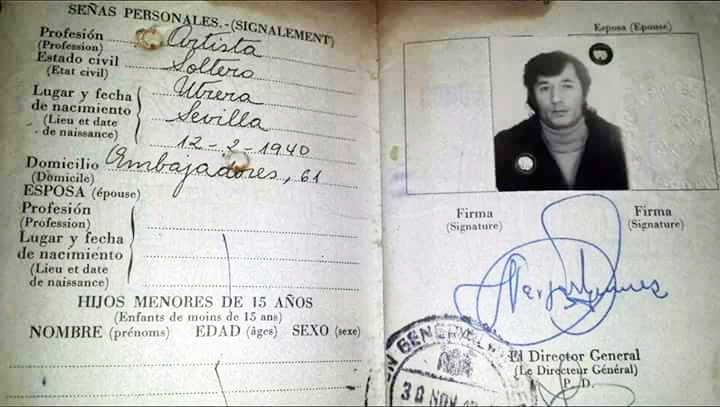 SEÑAS PERSONALES.-(SIGNALEMENT)
Profesión
(Profession)
Artista
Estado civil
(Etat civil)
Soltero
Lugar y fecha
de nacimiento
(Lieu et date
de naissance)
Utrera
Sevilla
12-2-1940
Domicilio
(Domicile)
Embajadores, 61
ESPOSA (épouse)
Profesión
(Profession)
Lugar y fecha
de nacimiento
(Lieu et date
de naissance)
HIJOS MENORES DE 15 AÑOS
(Enfants de moins de 15 ans)
NOMBRE (prénoms) EDAD (âges) SEXO (sexe)
Esposa (Epouse)
Firma
(Signature)
Firma
(Signature)
El Director General
(Le Directeur Général)
P. D.
GENERAL
30 NOV